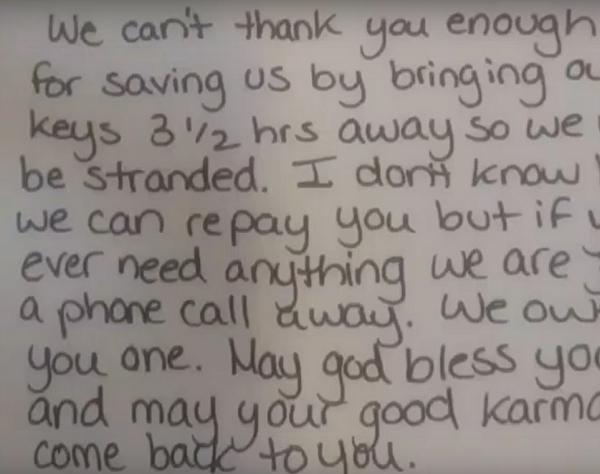 We can't thank you enough
for saving us by bringing
keys 3 1/2 hrs away so we
be stranded. I don't know
we can repay you but if
ever need anything we are
a phone call away. We
you one. May god bless
and may your good karma
come back to you.